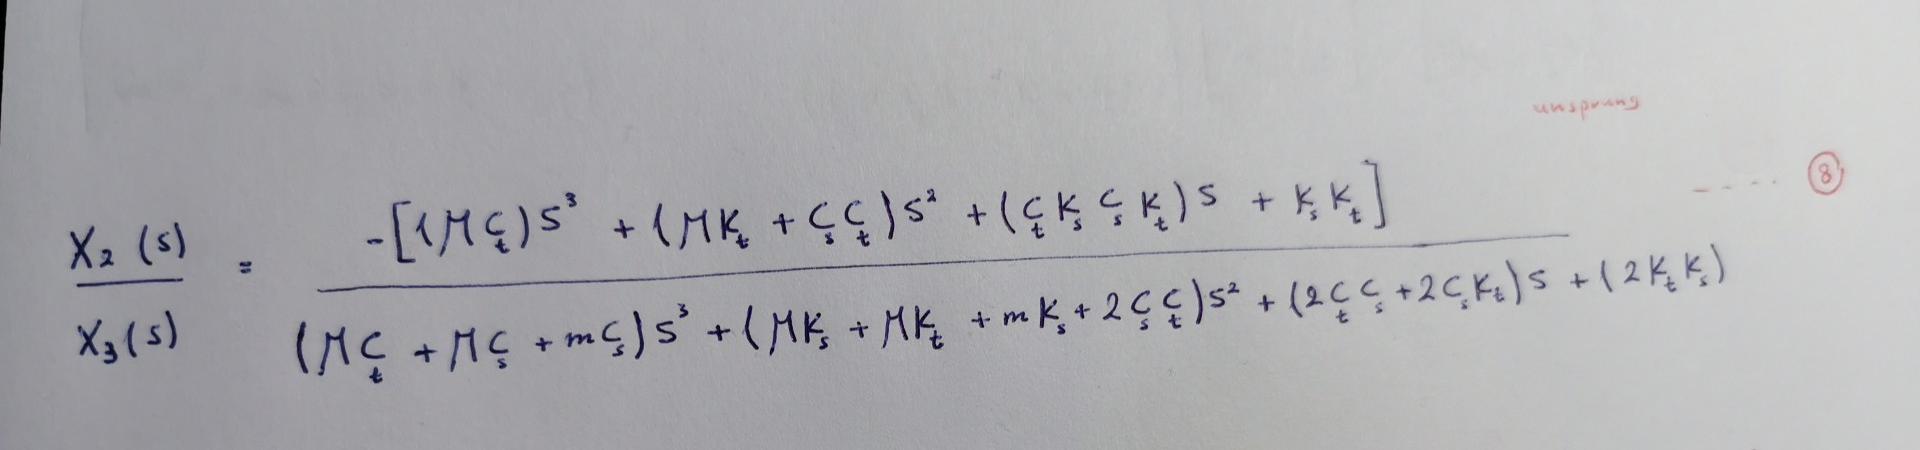 unsprung
X₂(s) / X₃(s) = -[(MCₜ)s³ + (MKₜ + CₛCₜ)s² + (CₜKₛ CₛKₜ)s + KₛKₜ] / (MCₜ + MCₛ + mCₛ)s³ + (MKₛ + MKₜ + mKₛ + 2CₛCₜ)s² + (2CₜCₛ + 2CₛKₜ)s + (2KₜKₛ) ---- ⑧